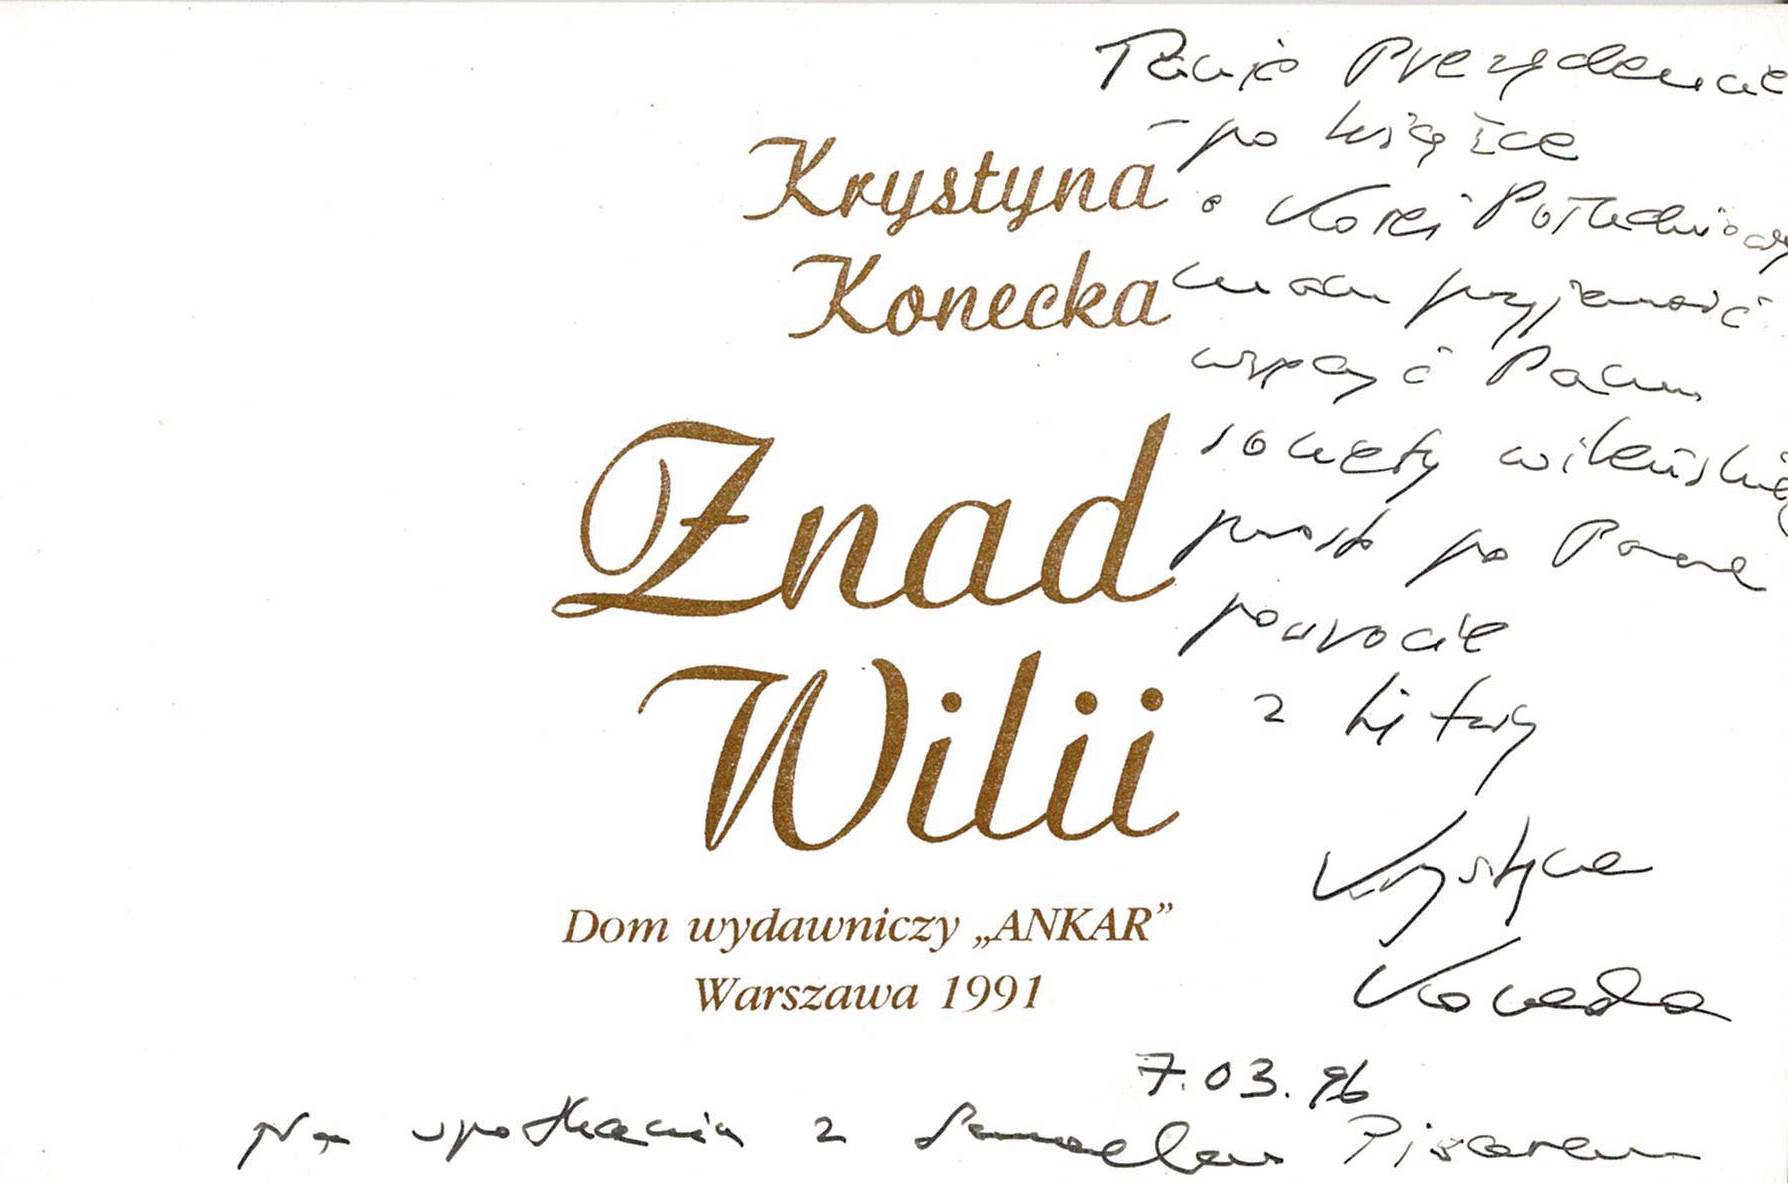 Panie Prezydencie
– po książce
o Korei Południowej
mam przyjemność
wręczyć Panu
sonety wileńskie
prosto po Pana
powrocie
z Litwy
Krystyna
Konecka
7.03.96
Na spotkaniu z Samuelem Pisarem
Krystyna
Konecka
Znad
Wilii
Dom wydawniczy „ANKAR”
Warszawa 1991